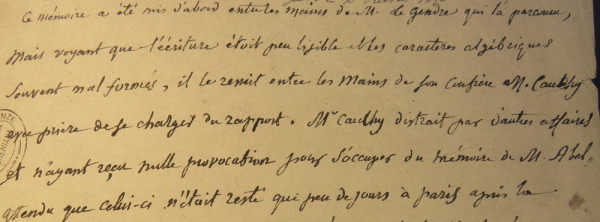 Ce mémoire a été mis d'abord entre les mains de M. Le Gendre qui la parcouru,
Mais voyant que l'écriture étoit peu lisible et les caracteres algébriques
souvent mal formés, il le remit entre les Mains de son confrère M. Cauchy
avec priere de se charger du rapport. Mr Cauchy distrait par d'autres affaires
et n'ayant reçu nulle provocation pour s'occuper du mémoire de M. Abel
attendu que celui-ci n'était resté que peu de jours à paris après la